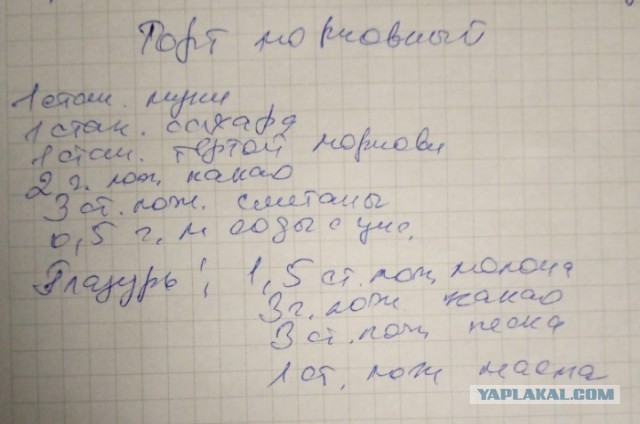 Торт морковный
1 стак. муки
1 стак. сахара
1 стак. тертой моркови
2 г. лож какао
3 ст. лож. сметаны
0,5 г. л соды с укс.
Глазурь: 1,5 ст. лож молока
3 г. лож какао
3 ст. лож песка
1 ст. лож масла
YAPLAKAL.COM